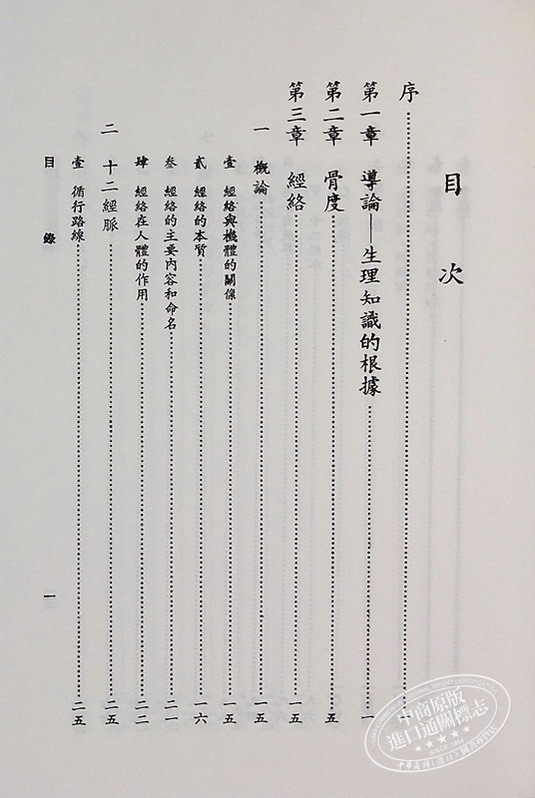 目次
序
第一章 導論——生理知識的根據 一
第二章 骨度 五
第三章 經絡 一五
一 概論 一五
壹 經絡與機體的關係 一五
貳 經絡的本質 一六
叁 經絡的主要內容和命名 二一
肆 經絡在人體的作用 二二
二 十二經脈 二五
壹 循行路線 二五
目錄 一
中商原版
進口通關標志